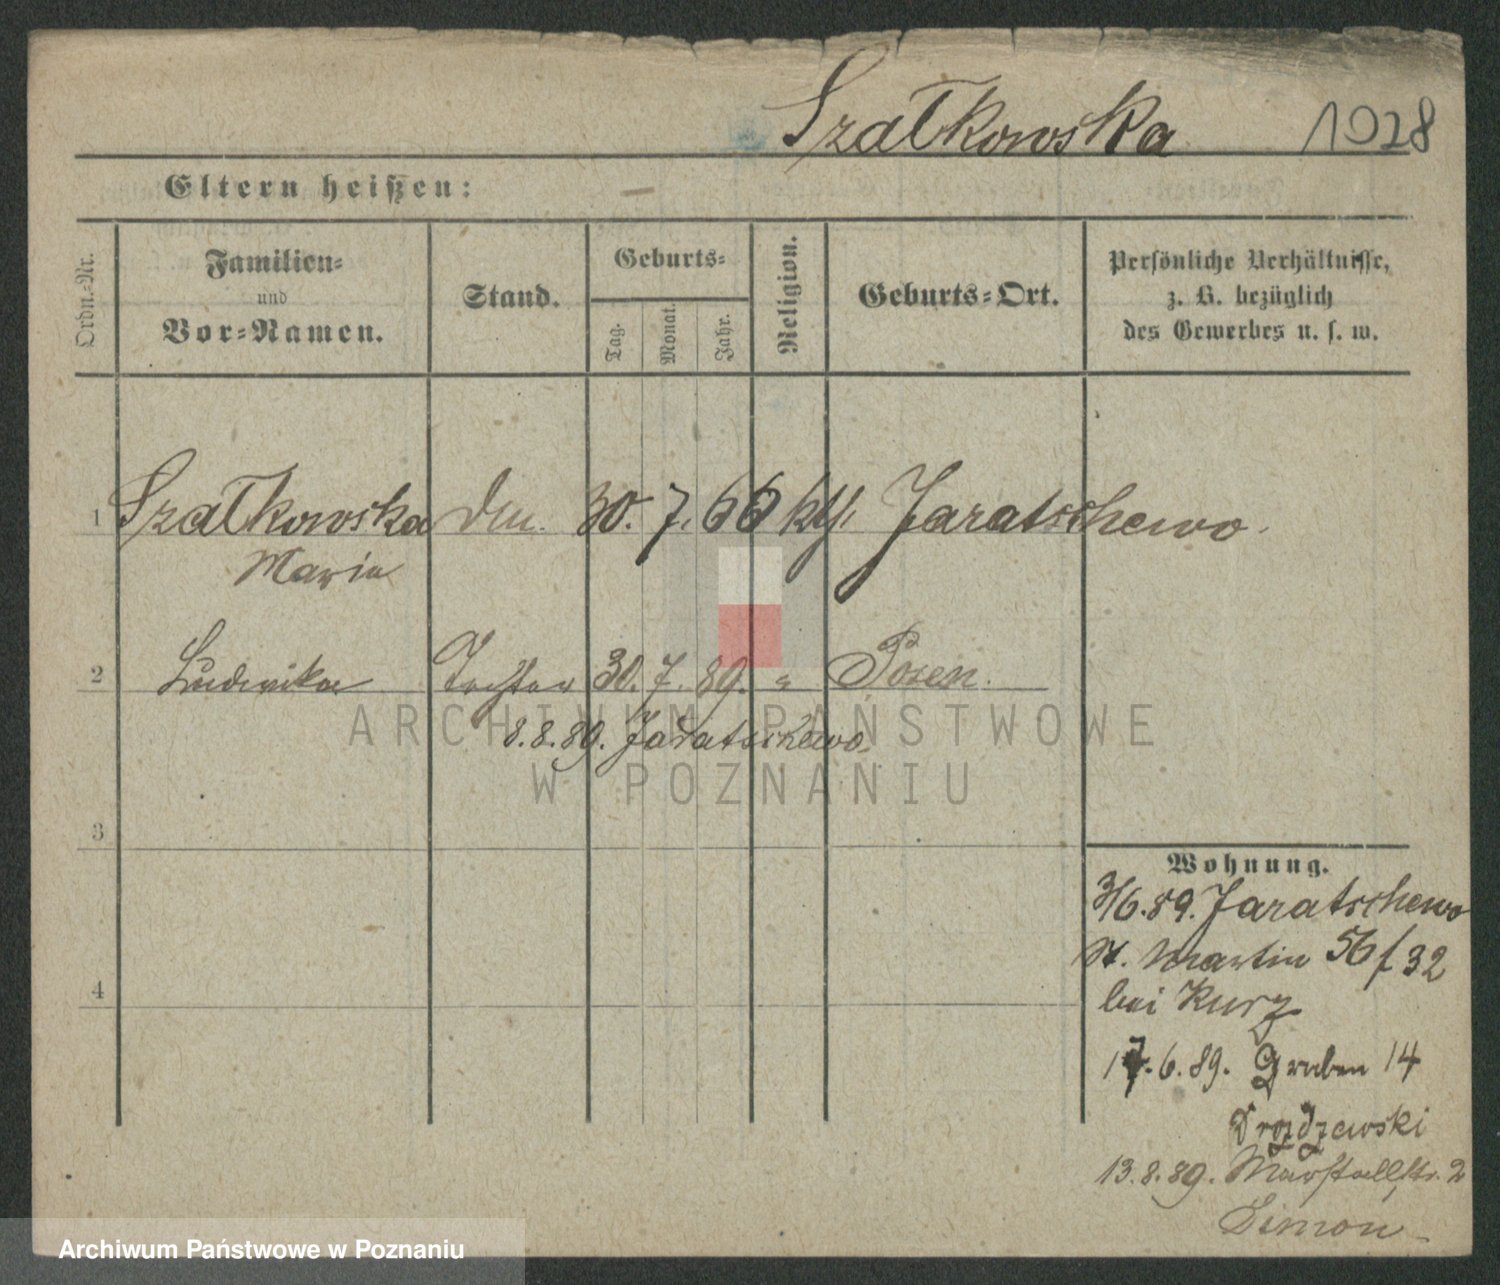 Szatkowska 1028
Eltern heißen: —
Ordn.-Nr.
Familien-
und
Vor-Namen.
Stand.
Geburts-
Tag.
Monat.
Jahr.
Religion.
Geburts-Ort.
Persönliche Verhältnisse,
z. B. bezüglich
des Gewerbes u. s. w.
1 Szatkowska 30. 7. 66 kth. Jaratschewo.
Maria
2 Ludwika Tochter 30. 7. 89. " Posen.
8.8.89. Jaratschewo
ARCHIWUM PAŃSTWOWE
W POZNANIU
3
4
Wohnung.
3/6.89. Jaratschewo
St. Martin 56 f 32
bei Kurz
17.6.89. Graben 14
Drozdzewski
13.8.89. Marstallstr. 2
Simon
Archiwum Państwowe w Poznaniu